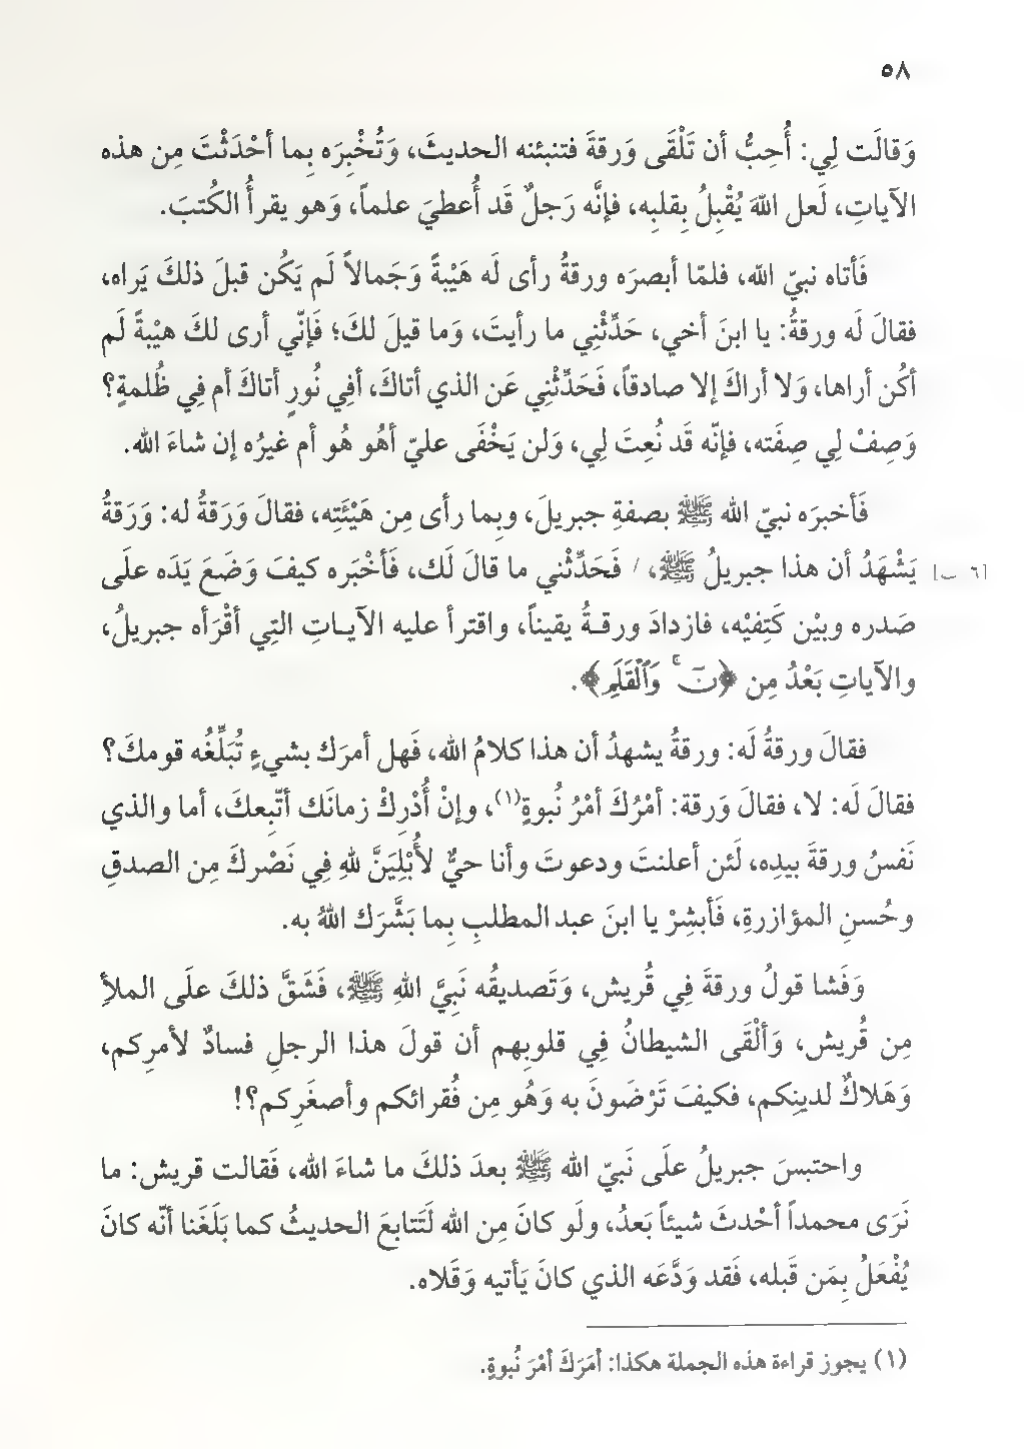 ٥٨
وَقالَت لِي: أُحِبُّ أن تَلْقَى وَرقةَ فتنبئنه الحديثَ، وَتُخْبِرَه بِما أحْدَثْتَ مِن هذه
الآياتِ، لَعل اللهَ يُقْبِلُ بِقلبِه، فإنَّه رَجلٌ قَد أُعطيَ علماً، وَهو يقرأُ الكُتبَ.
فَأتاه نبيّ الله، فلمّا أبصرَه ورقةُ رأى لَه هَيْبةً وَجَمالاً لَم يَكُن قبلَ ذلكَ يَراه،
فقالَ لَه ورقةُ: يا ابنَ أخي، حَدِّثْنِي ما رأيتَ، وَما قيلَ لكَ؛ فَإنّي أرى لكَ هيْبةً لَم
أكُن أراها، وَلا أراكَ إلا صادقاً، فَحَدِّثْنِي عَن الذي أتاكَ، أفِي نُورٍ أتاكَ أم فِي ظُلمةٍ؟
وَصِفْ لِي صِفَته، فإنّه قَد نُعِتَ لِي، وَلن يَخْفَى عليّ أهُو هُو أم غيرُه إن شاءَ الله.
فَأخبرَه نبيّ الله ﷺ بصفةِ جبريلَ، وبِما رأى مِن هَيْئَتِه، فقالَ وَرَقةُ له: وَرَقةُ
يَشْهَدُ أن هذا جبريلُ ﷺ، / فَحَدِّثْني ما قالَ لَك، فَأخْبَره كيفَ وَضَعَ يَدَه علَى [٦ ب]
صَدره وبيْن كَتِفيْه، فازدادَ ورقـةُ يقيناً، واقترأ عليه الآيـاتِ التِي أقْرَأه جبريلُ،
والآياتِ بَعْدُ مِن ﴿نٓ ۚ وَٱلْقَلَمِ﴾.
فقالَ ورقةُ لَه: ورقةُ يشهدُ أن هذا كلامُ الله، فَهل أمرَك بشيءٍ تُبَلِّغُه قومكَ؟
فقالَ لَه: لا، فقالَ وَرقة: أمْرُكَ أمْرُ نُبوةٍ(١)، وإنْ أُدْرِكْ زمانَك أتّبِعكَ، أما والذي
نَفسُ ورقةَ بيدِه، لَئن أعلنتَ ودعوتَ وأنا حيٌّ لأُبْلِيَنَّ للهِ فِي نَصْركَ مِن الصدقِ
وحُسنِ المؤازرةِ، فَأبشِرْ يا ابنَ عبد المطلبِ بِما بَشَّرَك اللهُ به.
وَفَشا قولُ ورقةَ فِي قُريش، وَتَصديقُه نَبِيَّ اللهِ ﷺ، فَشَقَّ ذلكَ علَى الملأِ
مِن قُريش، وَألْقَى الشيطانُ فِي قلوبِهم أن قولَ هذا الرجلِ فسادٌ لأمرِكم،
وَهَلاكٌ لدينِكم، فكيفَ تَرْضَونَ به وَهُو مِن فُقرائكم وأصغَرِكم؟!
واحتبسَ جبريلُ علَى نَبيّ الله ﷺ بعدَ ذلكَ ما شاءَ الله، فَقالت قريش: ما
نَرَى محمداً أحْدثَ شيئاً بَعدُ، ولَو كانَ مِن الله لَتَتابعَ الحديثُ كما بَلَغَنا أنّه كانَ
يُفْعَلُ بِمَن قَبله، فَقد وَدَّعَه الذي كانَ يَأتيه وَقَلاه.
(١) يجوز قراءة هذه الجملة هكذا: أمَرَكَ أمْرَ نُبوةٍ.